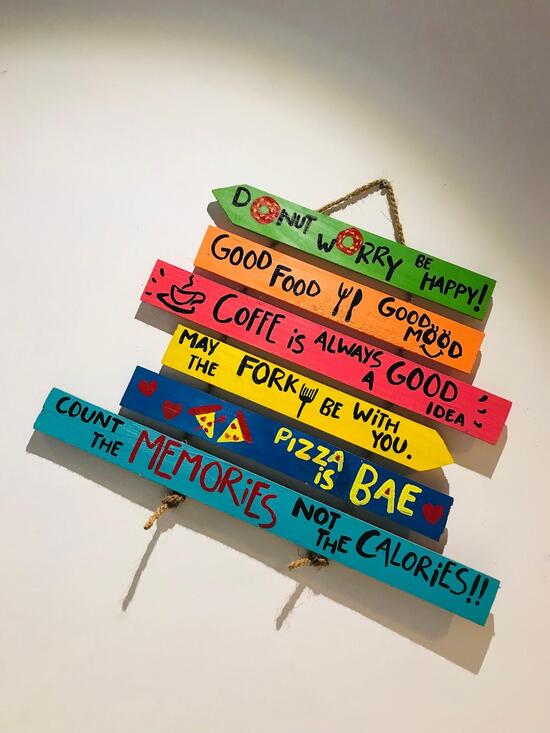 DONUT WORRY BE HAPPY!
GOOD FOOD GOOD MOOD
COFFE is ALWAYS A GOOD IDEA
MAY THE FORK BE WITH YOU.
PIZZA is BAE
COUNT THE MEMORiES NOT THE CALORiES!!